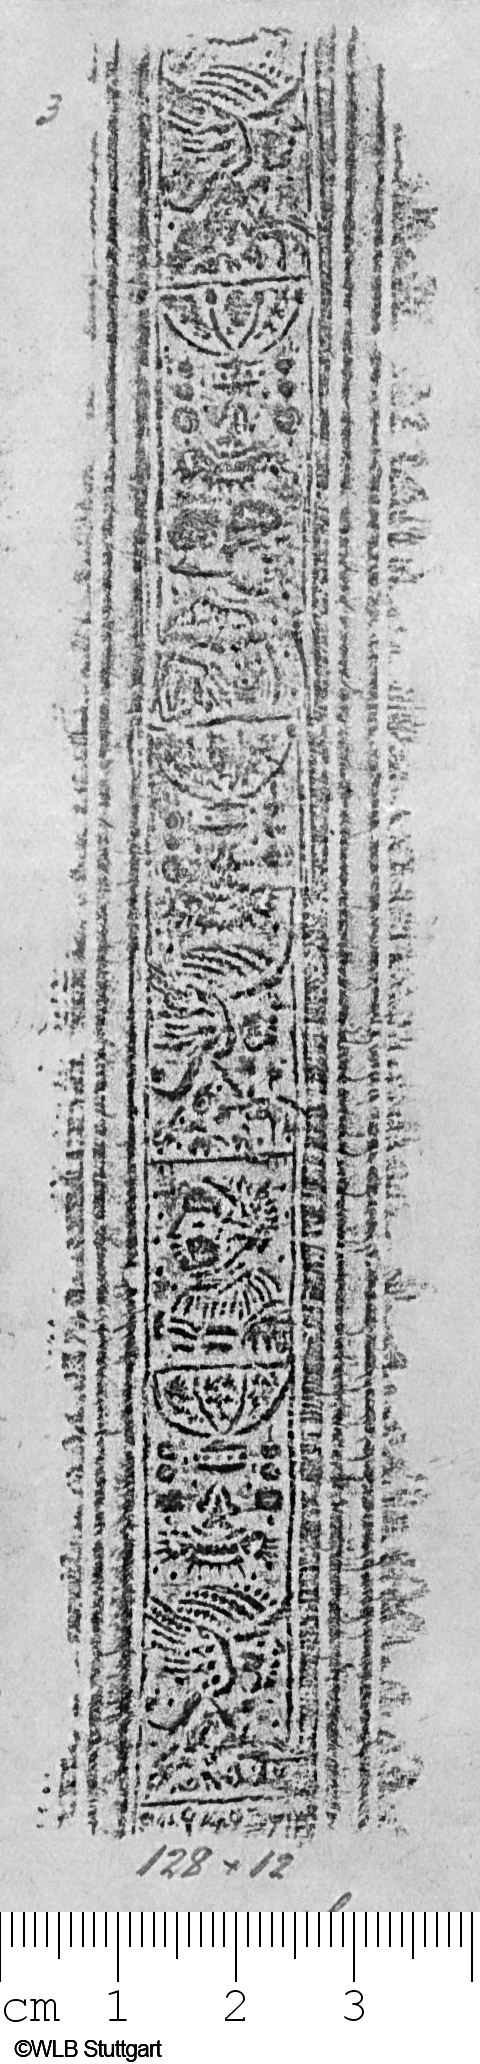 3
128 × 12
cm 1 2 3
©WLB Stuttgart